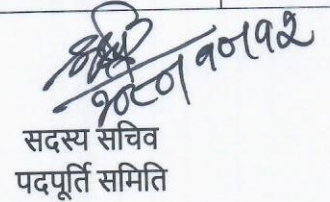 २०८०।१०।१२
सदस्य सचिव
पदपूर्ति समिति